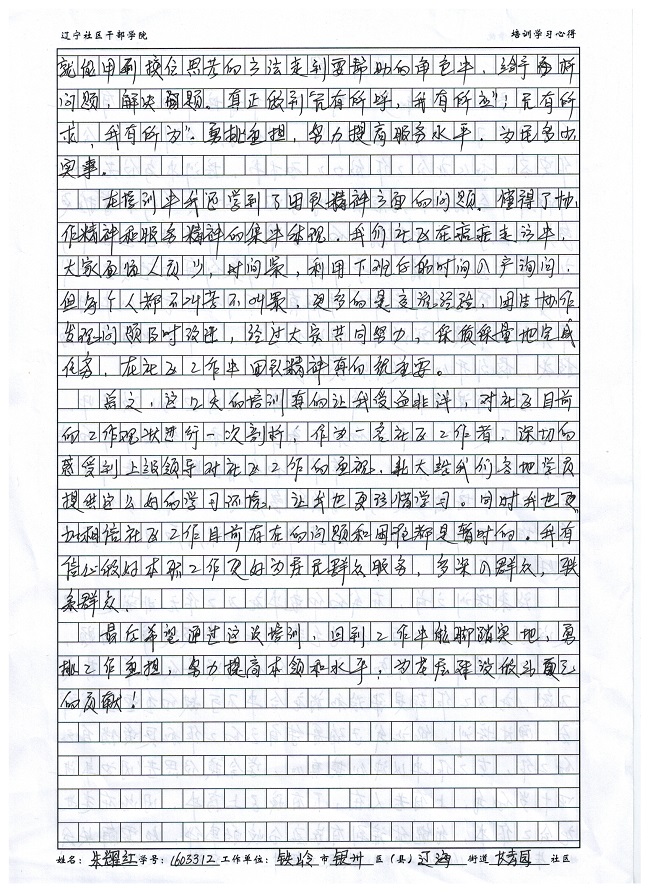 辽宁社区干部学院 培训学习心得
就能用到换位思考的方法走到要帮助的角色中，给予剖析
问题，解决问题。真正做到“民有所呼，我有所应”；民有所
求，我有所为”。勇挑重担，努力提高服务水平，为民多办
实事。
在培训中我还学到了团队精神方面的问题。懂得了协
作精神和服务精神的集中体现。我们社区在走访中，
大家面临人员少，时间紧，利用下班后的时间入户询问，
但每个人都不叫苦不叫累，更多的是交流经验，团结协作
发现问题及时改进，经过大家共同努力，保质保量地完成
任务，在社区工作中团队精神真的很重要。
总之，这几天的培训真的让我受益匪浅，对社区目前
的工作现状进行一次剖析，作为一名社区工作者，深切的
感受到上级领导对社区工作的重视，给我们各地学员
提供这么好的学习环境，让我也更珍惜学习。同时我也更
加相信社区工作目前存在的问题和困难都是暂时的。我有
信心做好本职工作更好为居民群众服务，多深入群众，联
系群众。
最后希望通过这次培训，回到工作中能脚踏实地，勇
挑工作重担，努力提高本领和水平，为基层建设做出更大
的贡献！
姓名：朱耀红 学号：1603312 工作单位：铁岭 市 银州 区（县）辽海 街道 社区